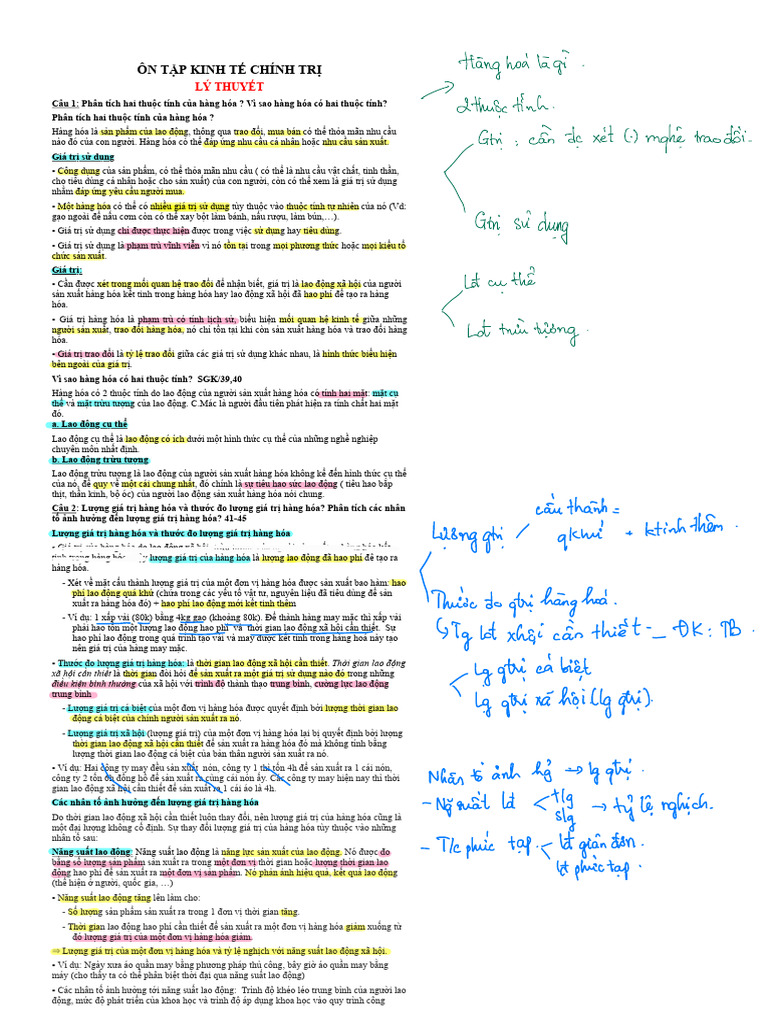 ÔN TẬP KINH TẾ CHÍNH TRỊ
LÝ THUYẾT
Câu 1: Phân tích hai thuộc tính của hàng hóa ? Vì sao hàng hóa có hai thuộc tính?
Phân tích hai thuộc tính của hàng hóa ?
Hàng hóa là sản phẩm của lao động, thông qua trao đổi, mua bán có thể thỏa mãn nhu cầu
nào đó của con người. Hàng hóa có thể đáp ứng nhu cầu cá nhân hoặc nhu cầu sản xuất.
Giá trị sử dụng
• Công dụng của sản phẩm, có thể thỏa mãn nhu cầu ( có thể là nhu cầu vật chất, tinh thần,
cho tiêu dùng cá nhân hoặc cho sản xuất) của con người, còn có thể xem là giá trị sử dụng
nhằm đáp ứng yêu cầu người mua.
• Một hàng hóa có thể có nhiều giá trị sử dụng tùy thuộc vào thuộc tính tự nhiên của nó (Vd:
gạo ngoài để nấu cơm còn có thể xay bột làm bánh, nấu rượu, làm bún,…).
• Giá trị sử dụng chỉ được thực hiện được trong việc sử dụng hay tiêu dùng.
• Giá trị sử dụng là phạm trù vĩnh viễn vì nó tồn tại trong mọi phương thức hoặc mọi kiểu tổ
chức sản xuất.
Giá trị:
• Cần được xét trong mối quan hệ trao đổi để nhận biết, giá trị là lao động xã hội của người
sản xuất hàng hóa kết tinh trong hàng hóa hay lao động xã hội đã hao phí để tạo ra hàng
hóa.
• Giá trị hàng hóa là phạm trù có tính lịch sử, biểu hiện mối quan hệ kinh tế giữa những
người sản xuất, trao đổi hàng hóa, nó chỉ tồn tại khi còn sản xuất hàng hóa và trao đổi hàng
hóa.
• Giá trị trao đổi là tỷ lệ trao đổi giữa các giá trị sử dụng khác nhau, là hình thức biểu hiện
bên ngoài của giá trị.
Vì sao hàng hóa có hai thuộc tính? SGK/39,40
Hàng hóa có 2 thuộc tính do lao động của người sản xuất hàng hóa có tính hai mặt: mặt cụ
thể và mặt trừu tượng của lao động. C.Mác là người đầu tiên phát hiện ra tính chất hai mặt
đó.
a. Lao động cụ thể
Lao động cụ thể là lao động có ích dưới một hình thức cụ thể của những nghề nghiệp
chuyên môn nhất định.
b. Lao động trừu tượng
Lao động trừu tượng là lao động của người sản xuất hàng hóa không kể đến hình thức cụ thể
của nó, để quy về một cái chung nhất, đó chính là sự tiêu hao sức lao động ( tiêu hao bắp
thịt, thần kinh, bộ óc) của người lao động sản xuất hàng hóa nói chung.
Câu 2: Lượng giá trị hàng hóa và thước đo lượng giá trị hàng hóa? Phân tích các nhân
tố ảnh hưởng đến lượng giá trị hàng hóa? 41-45
Lượng giá trị hàng hóa và thước đo lượng giá trị hàng hóa
lượng giá trị của hàng hóa là lượng lao động đã hao phí để tạo ra
hàng hóa.
- Xét về mặt cấu thành lượng giá trị của một đơn vị hàng hóa được sản xuất bao hàm: hao
phí lao động quá khứ (chứa trong các yếu tố vật tư, nguyên liệu đã tiêu dùng để sản
xuất ra hàng hóa đó) + hao phí lao động mới kết tinh thêm
- Ví dụ: 1 xấp vải (80k) bằng 4kg gạo (khoảng 80k). Để thành hàng may mặc thì xấp vải
phải hao tốn một lượng lao động hao phí và thời gian lao động xã hội cần thiết. Sự
hao phí lao động trong quá trình tạo vải và may được kết tinh trong hàng hóa này tạo
nên giá trị của hàng may mặc.
• Thước đo lượng giá trị hàng hóa: là thời gian lao động xã hội cần thiết. Thời gian lao động
xã hội cần thiết là thời gian đòi hỏi để sản xuất ra một giá trị sử dụng nào đó trong những
điều kiện bình thường của xã hội với trình độ thành thạo trung bình, cường lực lao động
trung bình
- Lượng giá trị cá biệt của một đơn vị hàng hóa được quyết định bởi lượng thời gian lao
động cá biệt của chính người sản xuất ra nó.
- Lượng giá trị xã hội (lượng giá trị) của một đơn vị hàng hóa lại bị quyết định bởi lượng
thời gian lao động xã hội cần thiết để sản xuất ra hàng hóa đó mà không tính bằng
lượng thời gian lao động cá biệt của bản thân người sản xuất ra nó.
• Ví dụ: Hai công ty may đều sản xuất nón, công ty 1 thì tốn 4h để sản xuất ra 1 cái nón,
công ty 2 tốn 6h đồng hồ để sản xuất ra cùng cái nón ấy. Các công ty may hiện nay thì thời
gian lao động xã hội cần thiết để sản xuất ra 1 cái áo là 4h.
Các nhân tố ảnh hưởng đến lượng giá trị hàng hóa
Do thời gian lao động xã hội cần thiết luôn thay đổi, nên lượng giá trị của hàng hóa cũng là
một đại lượng không cố định. Sự thay đổi lượng giá trị của hàng hóa tùy thuộc vào những
nhân tố sau:
Năng suất lao động: Năng suất lao động là năng lực sản xuất của lao động. Nó được đo
bằng số lượng sản phẩm sản xuất ra trong một đơn vị thời gian hoặc lượng thời gian lao
động hao phí để sản xuất ra một đơn vị sản phẩm. Nó phản ánh hiệu quả, kết quả lao động
(thể hiện ở người, quốc gia, …)
• Năng suất lao động tăng lên làm cho:
- Số lượng sản phẩm sản xuất ra trong 1 đơn vị thời gian tăng.
- Thời gian lao động hao phí cần thiết để sản xuất ra một đơn vị hàng hóa giảm xuống từ
đó lượng giá trị của một đơn vị hàng hóa giảm.
⇒ Lượng giá trị của một đơn vị hàng hóa và tỷ lệ nghịch với năng suất lao động xã hội.
• Ví dụ: Ngày xưa áo quần may bằng phương pháp thủ công, bây giờ áo quần may bằng
máy (cho thấy ta có thể phân biệt thời đại qua năng suất lao động)
• Các nhân tố ảnh hưởng tới năng suất lao động: Trình độ khéo léo trung bình của người lao
động, mức độ phát triển của khoa học và trình độ áp dụng khoa học vào quy trình công
Hàng hoá là gì.
2 thuộc tính.
Gtrị: cần đc xét (.) nghệ trao đổi.
Gtrị sử dụng
Lđ cụ thể
Lđ trừu tượng.
Lượng gtrị
cấu thành =
qkhứ + ktinh thêm.
Thước đo gtrị hàng hoá.
↳ Tg lđ xhội cần thiết - ĐK: TB
lg gtrị cá biệt
lg gtrị xã hội (lg gtrị).
Nhân tố ảnh hg → lg gtrị.
- Ng suất lđ
tlg
slg
→ tỷ lệ nghịch.
- T/c phức tạp.
lđ giản đơn.
lđ phức tạp.